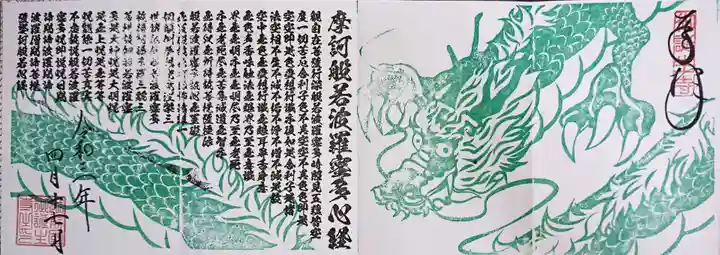 摩訶般若波羅蜜多心経
観自在菩薩行深般若波羅蜜多時照見五蘊皆空
度一切苦厄舎利子色不異空空不異色色即是
空空即是色受想行識亦復如是舎利子是諸
法空相不生不滅不垢不浄不増不減是故
空中無色無受想行識無眼耳鼻舌身意
無色声香味触法無眼界乃至無意識
界無無明亦無無明尽乃至無老死
亦無老死尽無苦集滅道無智亦
無得以無所得故菩提薩埵依
般若波羅蜜多故心無罣礙
無罣礙故無有恐怖遠離一
切顛倒夢想究竟涅槃三
世諸仏依般若波羅蜜多
故得阿耨多羅三藐三
菩提故知般若波羅蜜
多是大神呪是大明呪
是無上呪是無等等
呪能除一切苦真実
不虚故説般若波羅
蜜多呪即説呪曰羯諦
羯諦波羅羯諦
波羅僧羯諦菩提
薩婆訶般若心経
令和二年
四月十七日